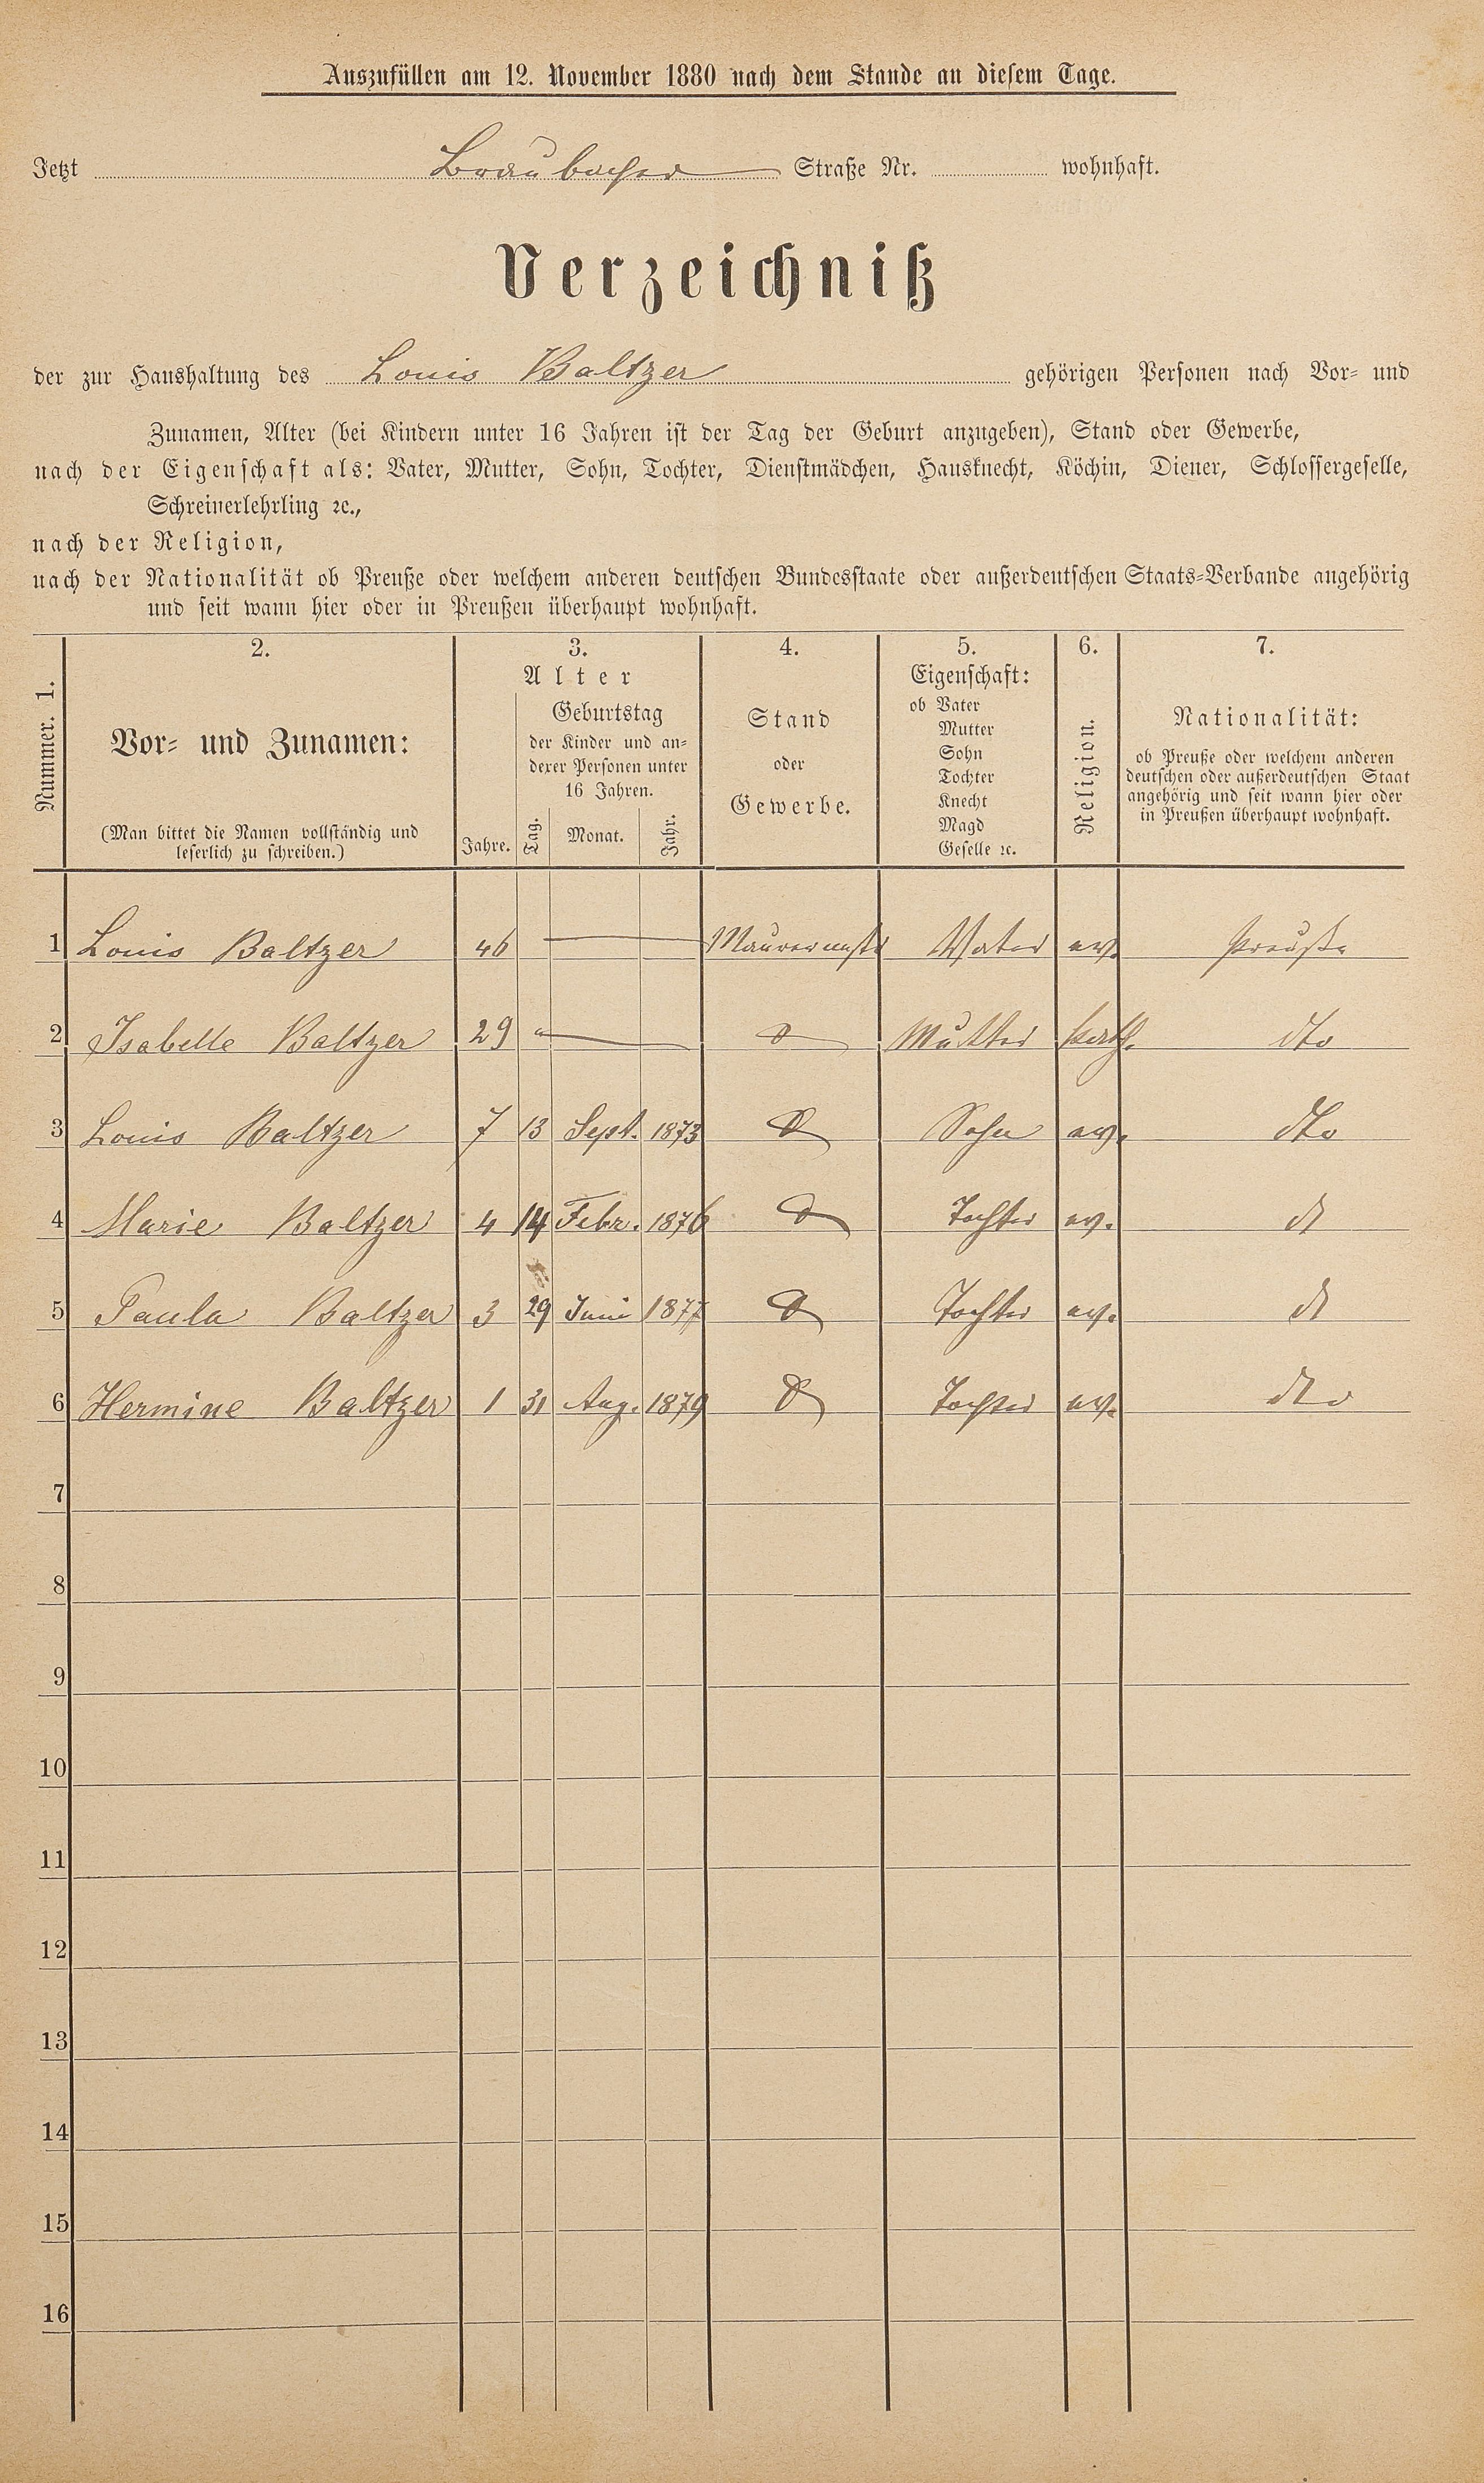 Auszufüllen am 12. November 1880 nach dem Stande an diesem Tage.
Jetzt Braubacher Straße Nr. wohnhaft.
Verzeichniß
der zur Haushaltung des Louis Baltzer gehörigen Personen nach Vor- und
Zunamen, Alter (bei Kindern unter 16 Jahren ist der Tag der Geburt anzugeben), Stand oder Gewerbe,
nach der Eigenschaft als: Vater, Mutter, Sohn, Tochter, Dienstmädchen, Hausknecht, Köchin, Diener, Schlossergeselle,
Schreinerlehrling ꝛc.,
nach der Religion,
nach der Nationalität ob Preuße oder welchem anderen deutschen Bundesstaate oder außerdeutschen Staats-Verbande angehörig
und seit wann hier oder in Preußen überhaupt wohnhaft.
Nummer. 1.
2.
Vor- und Zunamen:
(Man bittet die Namen vollständig und
leserlich zu schreiben.)
3.
Alter
Jahre.
Geburtstag
der Kinder und an-
derer Personen unter
16 Jahren.
Tag. Monat. Jahr.
4.
Stand
oder
Gewerbe.
5.
Eigenschaft:
ob Vater
Mutter
Sohn
Tochter
Knecht
Magd
Geselle ꝛc.
6.
Religion.
7.
Nationalität:
ob Preuße oder welchem anderen
deutschen oder außerdeutschen Staat
angehörig und seit wann hier oder
in Preußen überhaupt wohnhaft.
1 Louis Baltzer 46 Maurermstr Vater ev. Preuße
2 Isabelle Baltzer 29 Mutter kath. dto
3 Louis Baltzer 7 13 Sept. 1873 Sohn ev. dto
4 Marie Baltzer 4 14 Febr. 1876 Tochter ev. dt
5 Paula Baltzer 3 29 Juni 1877 Tochter ev. dt
6 Hermine Baltzer 1 31 Aug. 1879 Tochter ev. dto
7
8
9
10
11
12
13
14
15
16